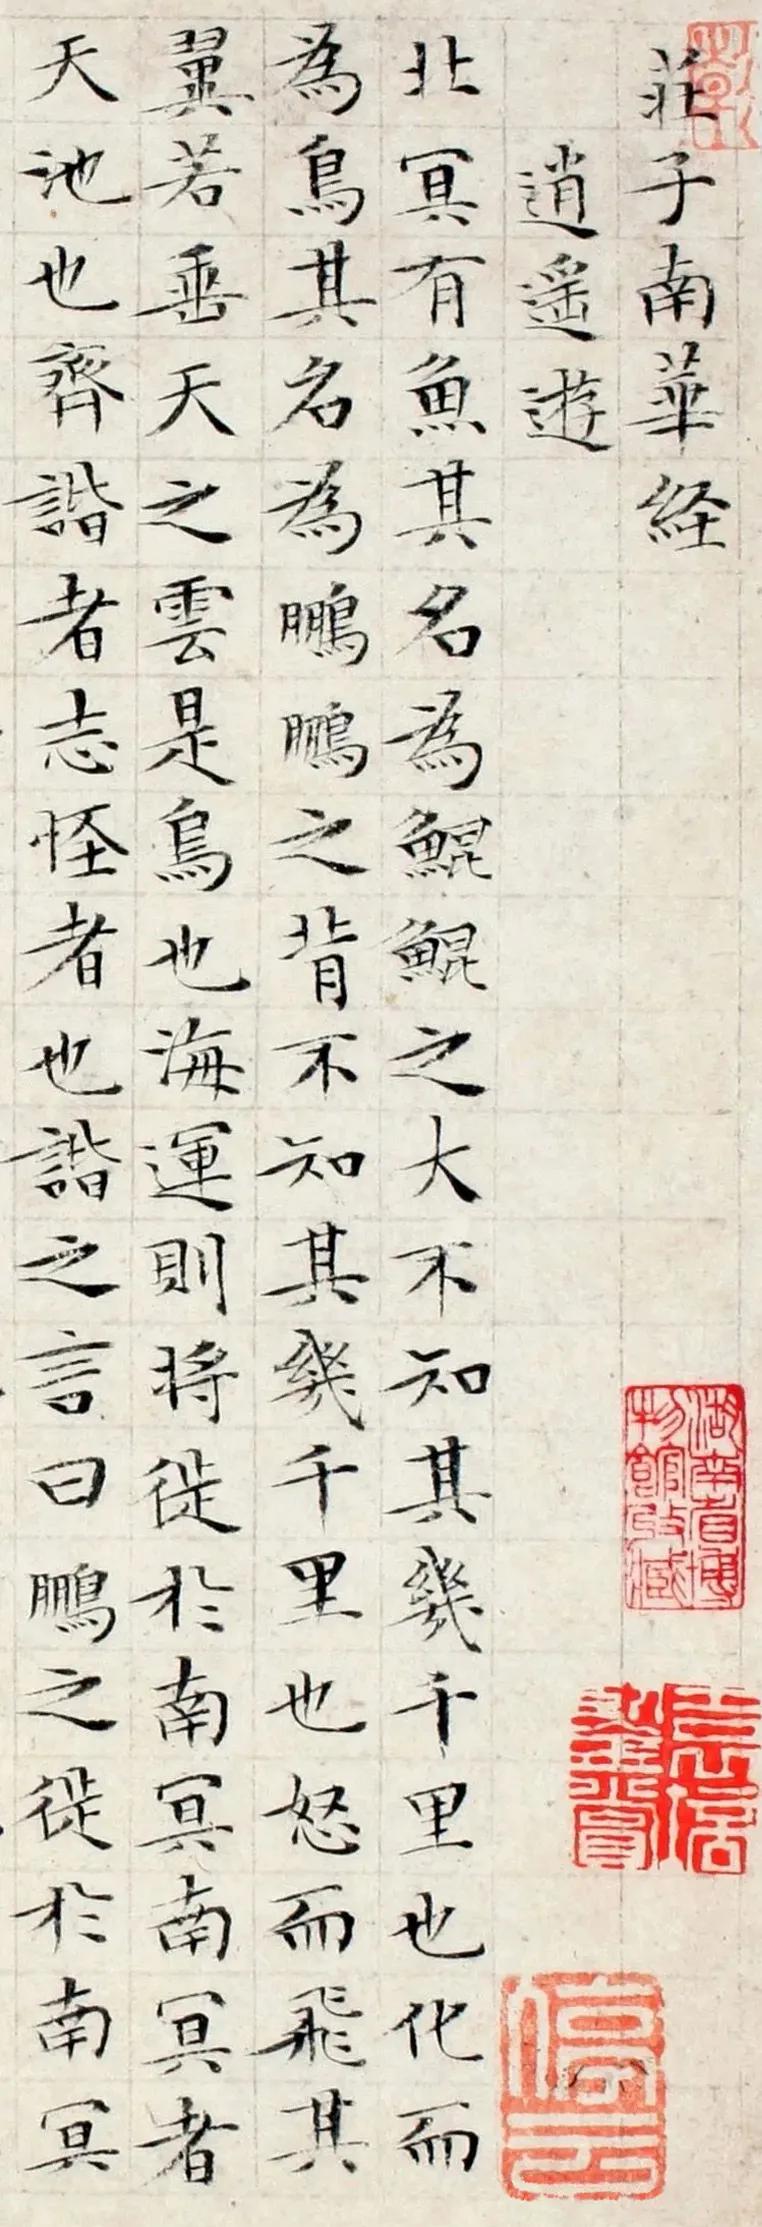 莊子南華経
逍遙遊
北冥有魚其名為鯤鯤之大不知其幾千里也化而
為鳥其名為鵬鵬之背不知其幾千里也怒而飛其
翼若垂天之雲是鳥也海運則將徙於南冥南冥者
天池也齊諧者志怪者也諧之言曰鵬之徙於南冥
湖南省博
物館收藏
停云